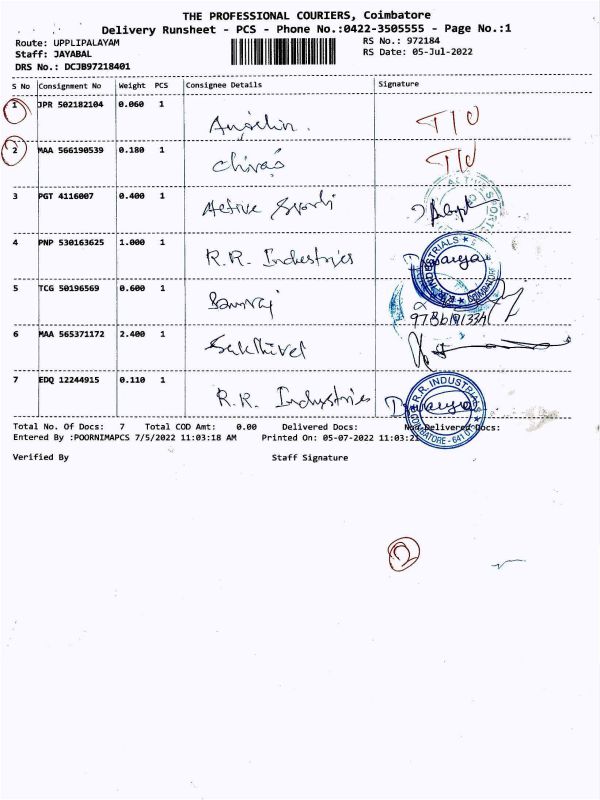 THE PROFESSIONAL COURIERS, Coimbatore
Delivery Runsheet - PCS - Phone No.:0422-3505555 - Page No.:1
Route: UPPLIPALAYAM RS No.: 972184
Staff: JAYABAL RS Date: 05-Jul-2022
DRS No.: DCJB97218401
S No Consignment No Weight PCS Consignee Details Signature
1 JPR 502182104 0.060 1
Angelin. T/O
2 MAA 566190539 0.180 1
T/O
3 PGT 4116007 0.400 1
Active Sports
ACTIVE SPORTS
4 PNP 530163625 1.000 1
R.R. Industries
R.R. INDUSTRIALS COIMBATORE
5 TCG 50196569 0.600 1
6 MAA 565371172 2.400 1
Sakthivel
7 EDQ 12244915 0.110 1
R.R. Industries
R.R. INDUSTRIALS COIMBATORE - 641
Total No. Of Docs: 7 Total COD Amt: 0.00 Delivered Docs: Non-Delivered Docs:
Entered By :POORNIMAPCS 7/5/2022 11:03:18 AM Printed On: 05-07-2022 11:03:21
Verified By Staff Signature
2